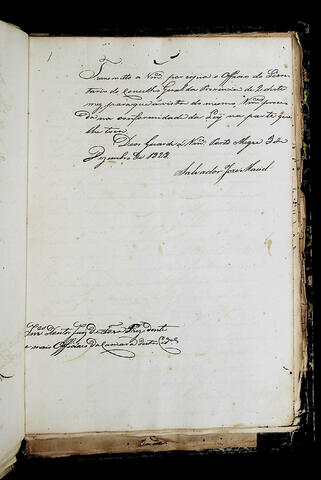 Transmitto a Vmces por copia o Officio do Secre-
tario do Conselho Geral da Provincia de 2 deste
mez para que á vista do mesmo Vmces proce-
dão na conformidade da Ley na parte que
lhe toca.
Deos Guarde a Vmces Porto Alegre 3 de
Dezembro de 1828
Salvador José Maciel
Snres Doutor Juiz de Fora Prezidente
e mais Officiaes da Camara desta Cide